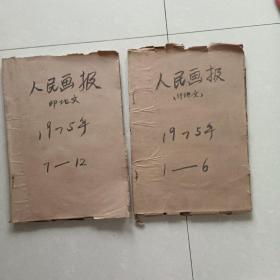 人民画报
印地文
1975年
7—12
人民画报
(印地文)
1975年
1—6